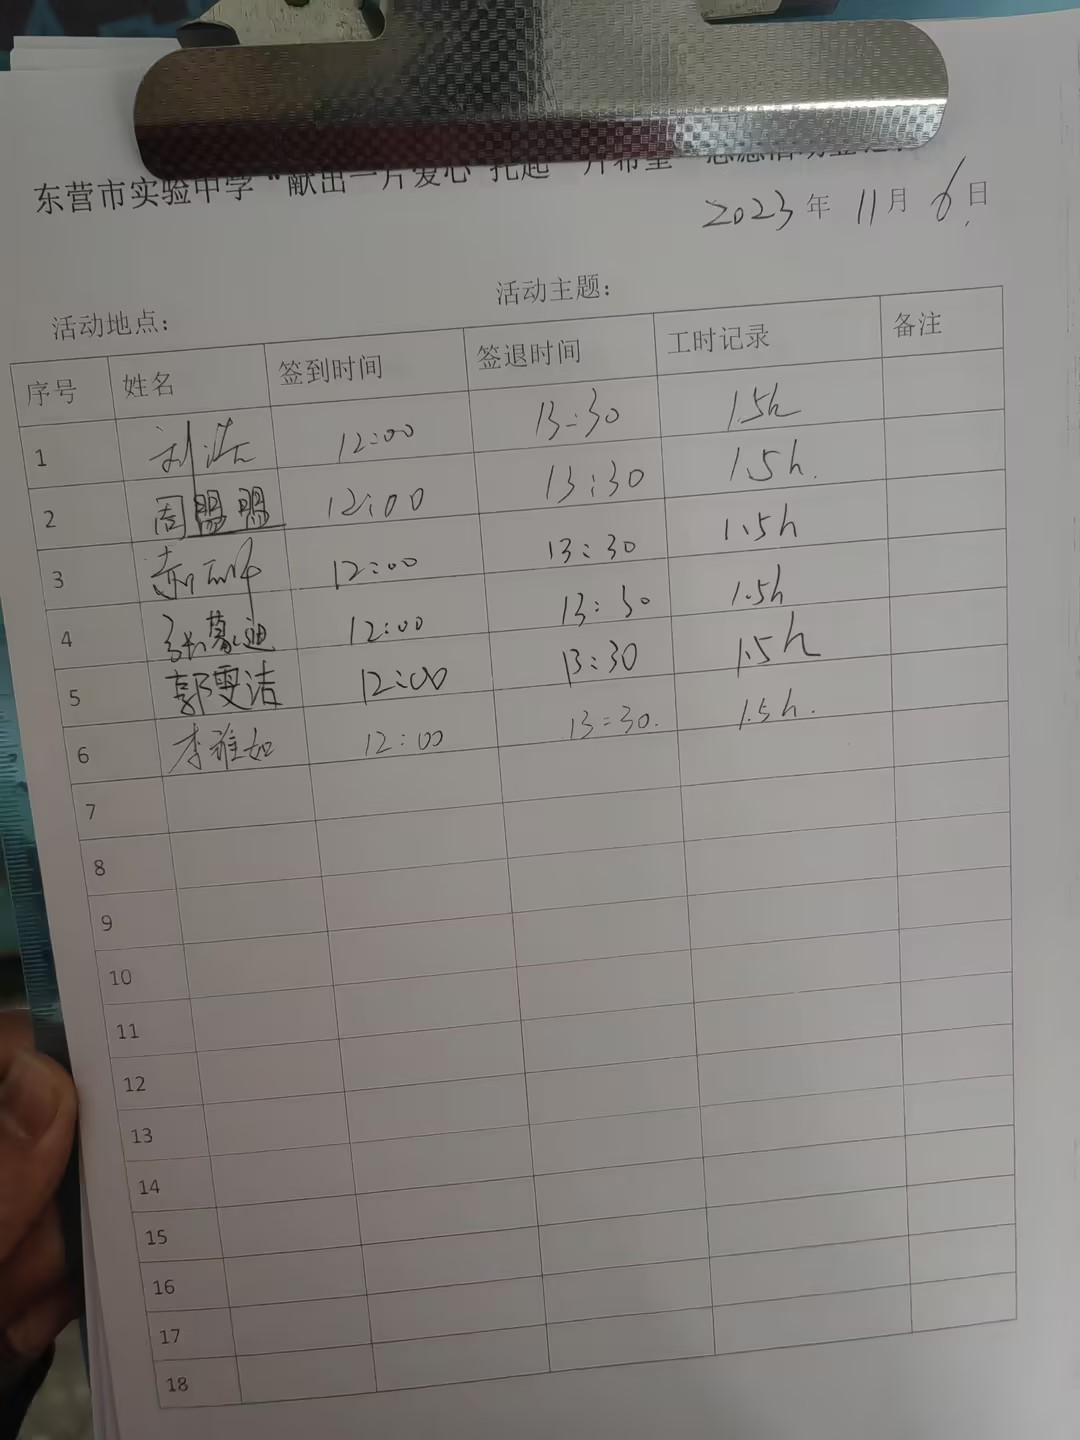 东营市实验中学“献出一片爱心 托起一片希望”志愿活动登记
2023年 11月 6日
活动地点： 活动主题：
序号 姓名 签到时间 签退时间 工时记录 备注
1 刘浩 12:00 13:30 1.5h
2 周盟盟 12:00 13:30 1.5h.
3 12:00 13:30 1.5h
4 张蔓迪 12:00 13:30 1.5h
5 郭雯洁 12:00 13:30 1.5h
6 李雅如 12:00 13:30. 1.5h.
7
8
9
10
11
12
13
14
15
16
17
18